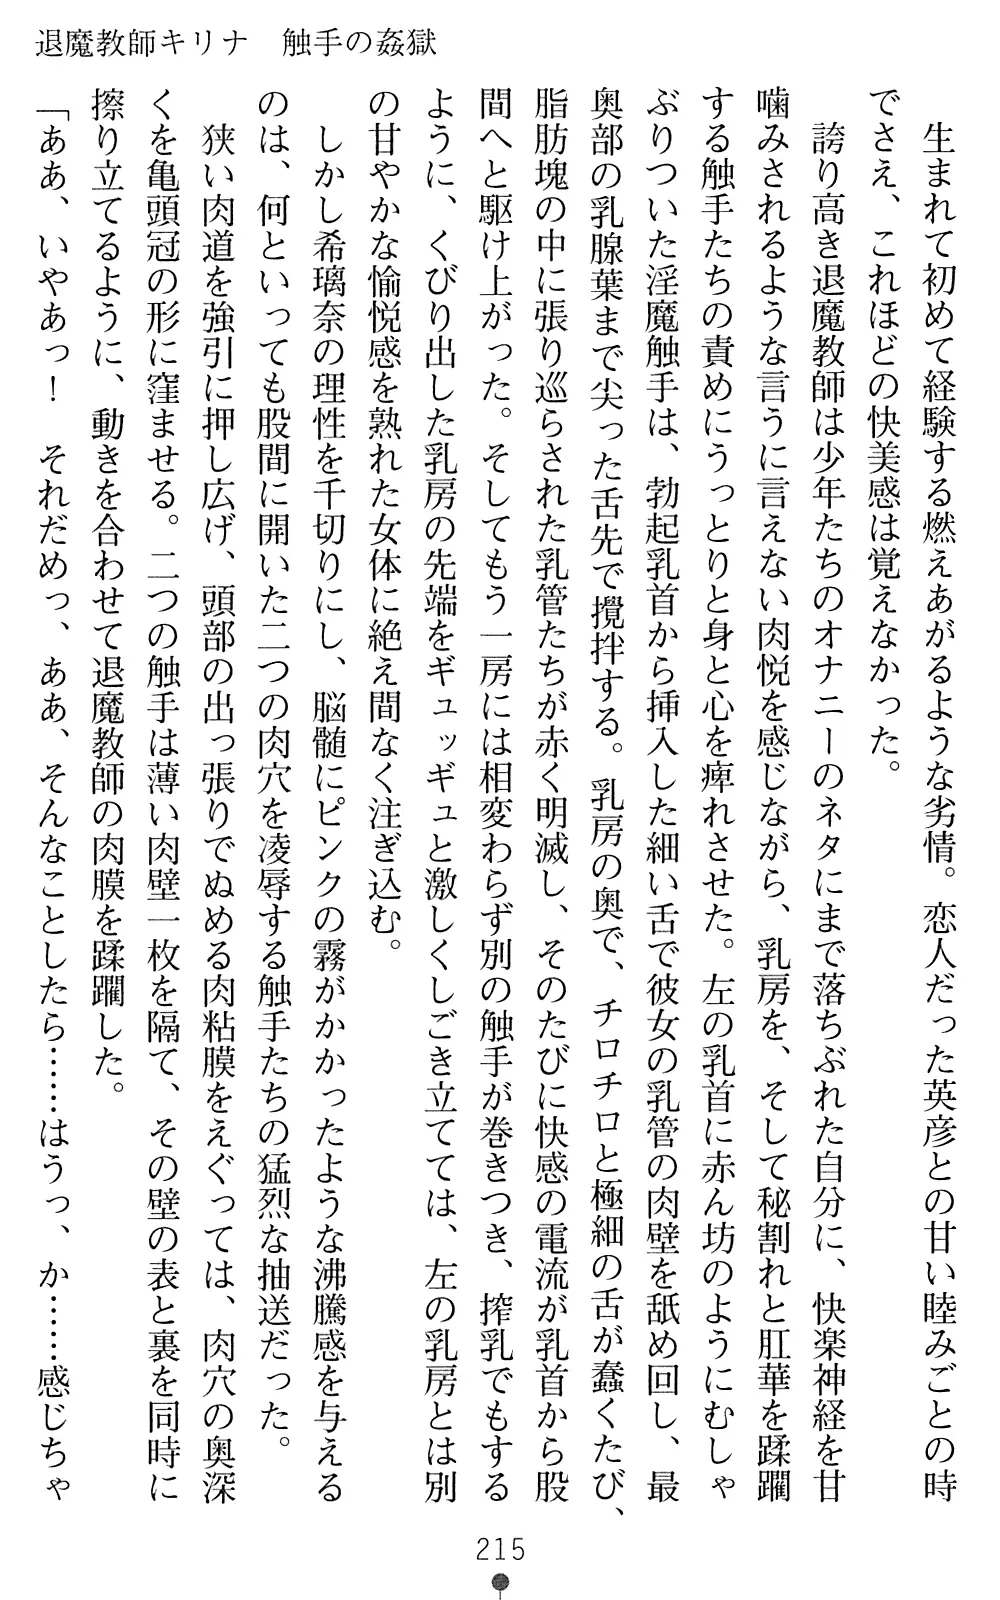 退魔教師キリナ　触手の姦獄
　生まれて初めて経験する燃えあがるような劣情。恋人だった英彦との甘い睦みごとの時
でさえ、これほどの快美感は覚えなかった。
　誇り高き退魔教師は少年たちのオナニーのネタにまで落ちぶれた自分に、快楽神経を甘
噛みされるような言うに言えない肉悦を感じながら、乳房を、そして秘割れと肛華を蹂躙
する触手たちの責めにうっとりと身と心を痺れさせた。左の乳首に赤ん坊のようにむしゃ
ぶりついた淫魔触手は、勃起乳首から挿入した細い舌で彼女の乳管の肉壁を舐め回し、最
奥部の乳腺葉まで尖った舌先で攪拌する。乳房の奥で、チロチロと極細の舌が蠢くたび、
脂肪塊の中に張り巡らされた乳管たちが赤く明滅し、そのたびに快感の電流が乳首から股
間へと駆け上がった。そしてもう一房には相変わらず別の触手が巻きつき、搾乳でもする
ように、くびり出した乳房の先端をギュッギュと激しくしごき立てては、左の乳房とは別
の甘やかな愉悦感を熟れた女体に絶え間なく注ぎ込む。
　しかし希璃奈の理性を千切りにし、脳髄にピンクの霧がかかったような沸騰感を与える
のは、何といっても股間に開いた二つの肉穴を凌辱する触手たちの猛烈な抽送だった。
　狭い肉道を強引に押し広げ、頭部の出っ張りでぬめる肉粘膜をえぐっては、肉穴の奥深
くを亀頭冠の形に窪ませる。二つの触手は薄い肉壁一枚を隔て、その壁の表と裏を同時に
擦り立てるように、動きを合わせて退魔教師の肉膜を蹂躙した。
「ああ、いやあっ！　それだめっ、ああ、そんなことしたら……はうっ、か……感じちゃ
215